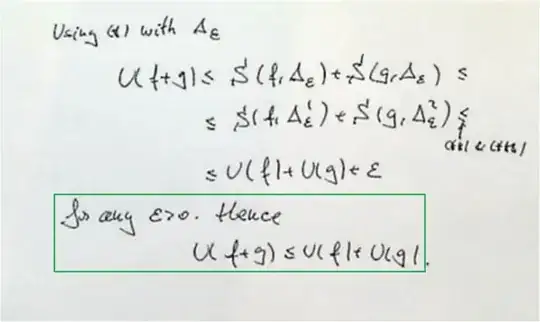 Using (*) with Δε
U(f+g) ≤ S(f, Δε) + S(g, Δε) ≤
≤ S(f, Δε¹) + S(g, Δε²) ≤
(**) & (***)
≤ U(f) + U(g) + ε
for any ε>0. Hence
U(f+g) ≤ U(f) + U(g).